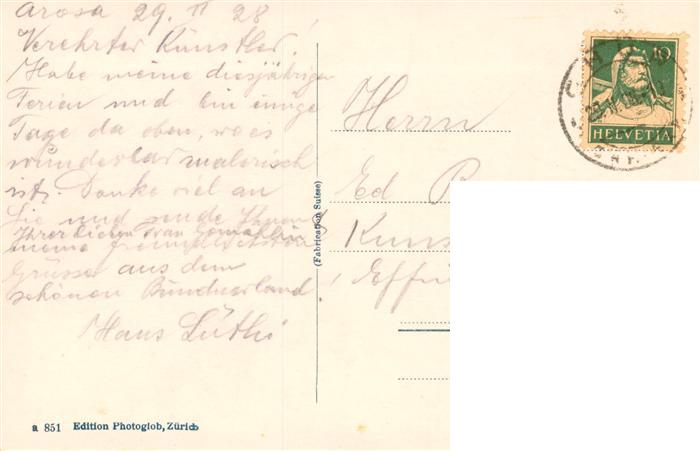 Arosa 29. II 28
Verehrter Künstler!
Habe meine diesjährigen
Ferien und bin einige
Tage da oben, wo es
wunderbar malerisch
ist. Denke viel an
Sie und sende Ihnen &
Ihrer lieben Frau Gemahlin
meine freundlichsten
Grüsse aus dem
schönen Bündnerland!
Hans Lüthi
a 851 Edition Photoglob, Zürich
(Fabrication Suisse)
Herrn
Ed
Kuns
Effi
10
HELVETIA